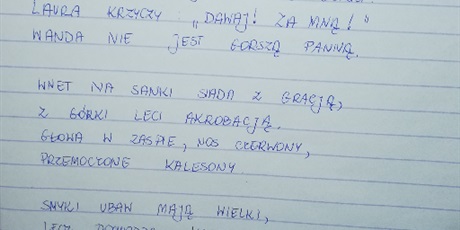 LAURA KRZYCZY: „DAWAJ! ZA MNĄ!"
WANDA NIE JEST GORSZĄ PANNĄ.
WNET NA SANKI SIADA Z GRACJĄ,
Z GÓRKI LECI AKROBACJĄ.
GŁOWA W ZASPIE, NOS CZERWONY,
PRZEMOCZONE KALESONY.
SMYKI UBAW MAJĄ WIELKI,
LECZ